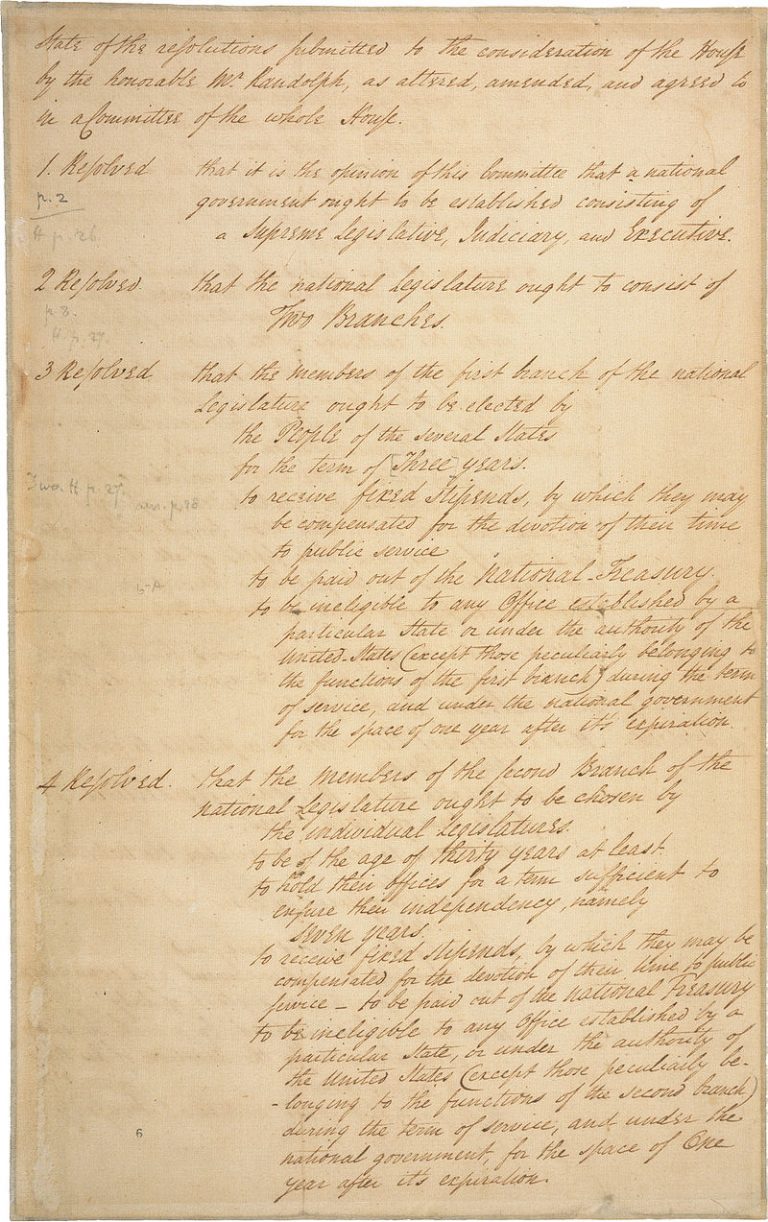 State of the resolutions submitted to the consideration of the House
by the honorable Mr. Randolph, as altered, amended, and agreed to
in a Committee of the whole House.
1. Resolved that it is the opinion of this Committee that a national
p. 2 government ought to be established consisting of
H p. 26 a Supreme Legislative, Judiciary, and Executive.
2 Resolved. that the national Legislature ought to consist of
p. 3.
Two Branches.
H. p. 27.
3 Resolved that the members of the first branch of the national
Legislature ought to be elected by
the People of the several States
for the term of [Three] years.
Two. H p. 27.
to receive fixed Stipends, by which they may
p. 28
be compensated for the devotion of their time
to public service
to be paid out of the National-Treasury.
to be ineligible to any Office established by a
particular State or under the authority of the
United-States (except those peculiarly belonging to
the functions of the first branch) during the term
of service, and under the national government
for the space of one year after it's expiration.
4 Resolved. that the members of the second Branch of the
national Legislature ought to be chosen by
the individual Legislatures.
to be of the age of thirty years at least.
to hold their offices for a term sufficient to
ensure their independency, namely
seven years.
to receive fixed stipends, by which they may be
compensated for the devotion of their time to public
service — to be paid out of the National Treasury
to be ineligible to any Office established by a
particular State, or under the authority of
the United States (except those peculiarly be-
-longing to the functions of the second branch)
during the term of service, and under the
6
national government, for the space of One
year after it's expiration.